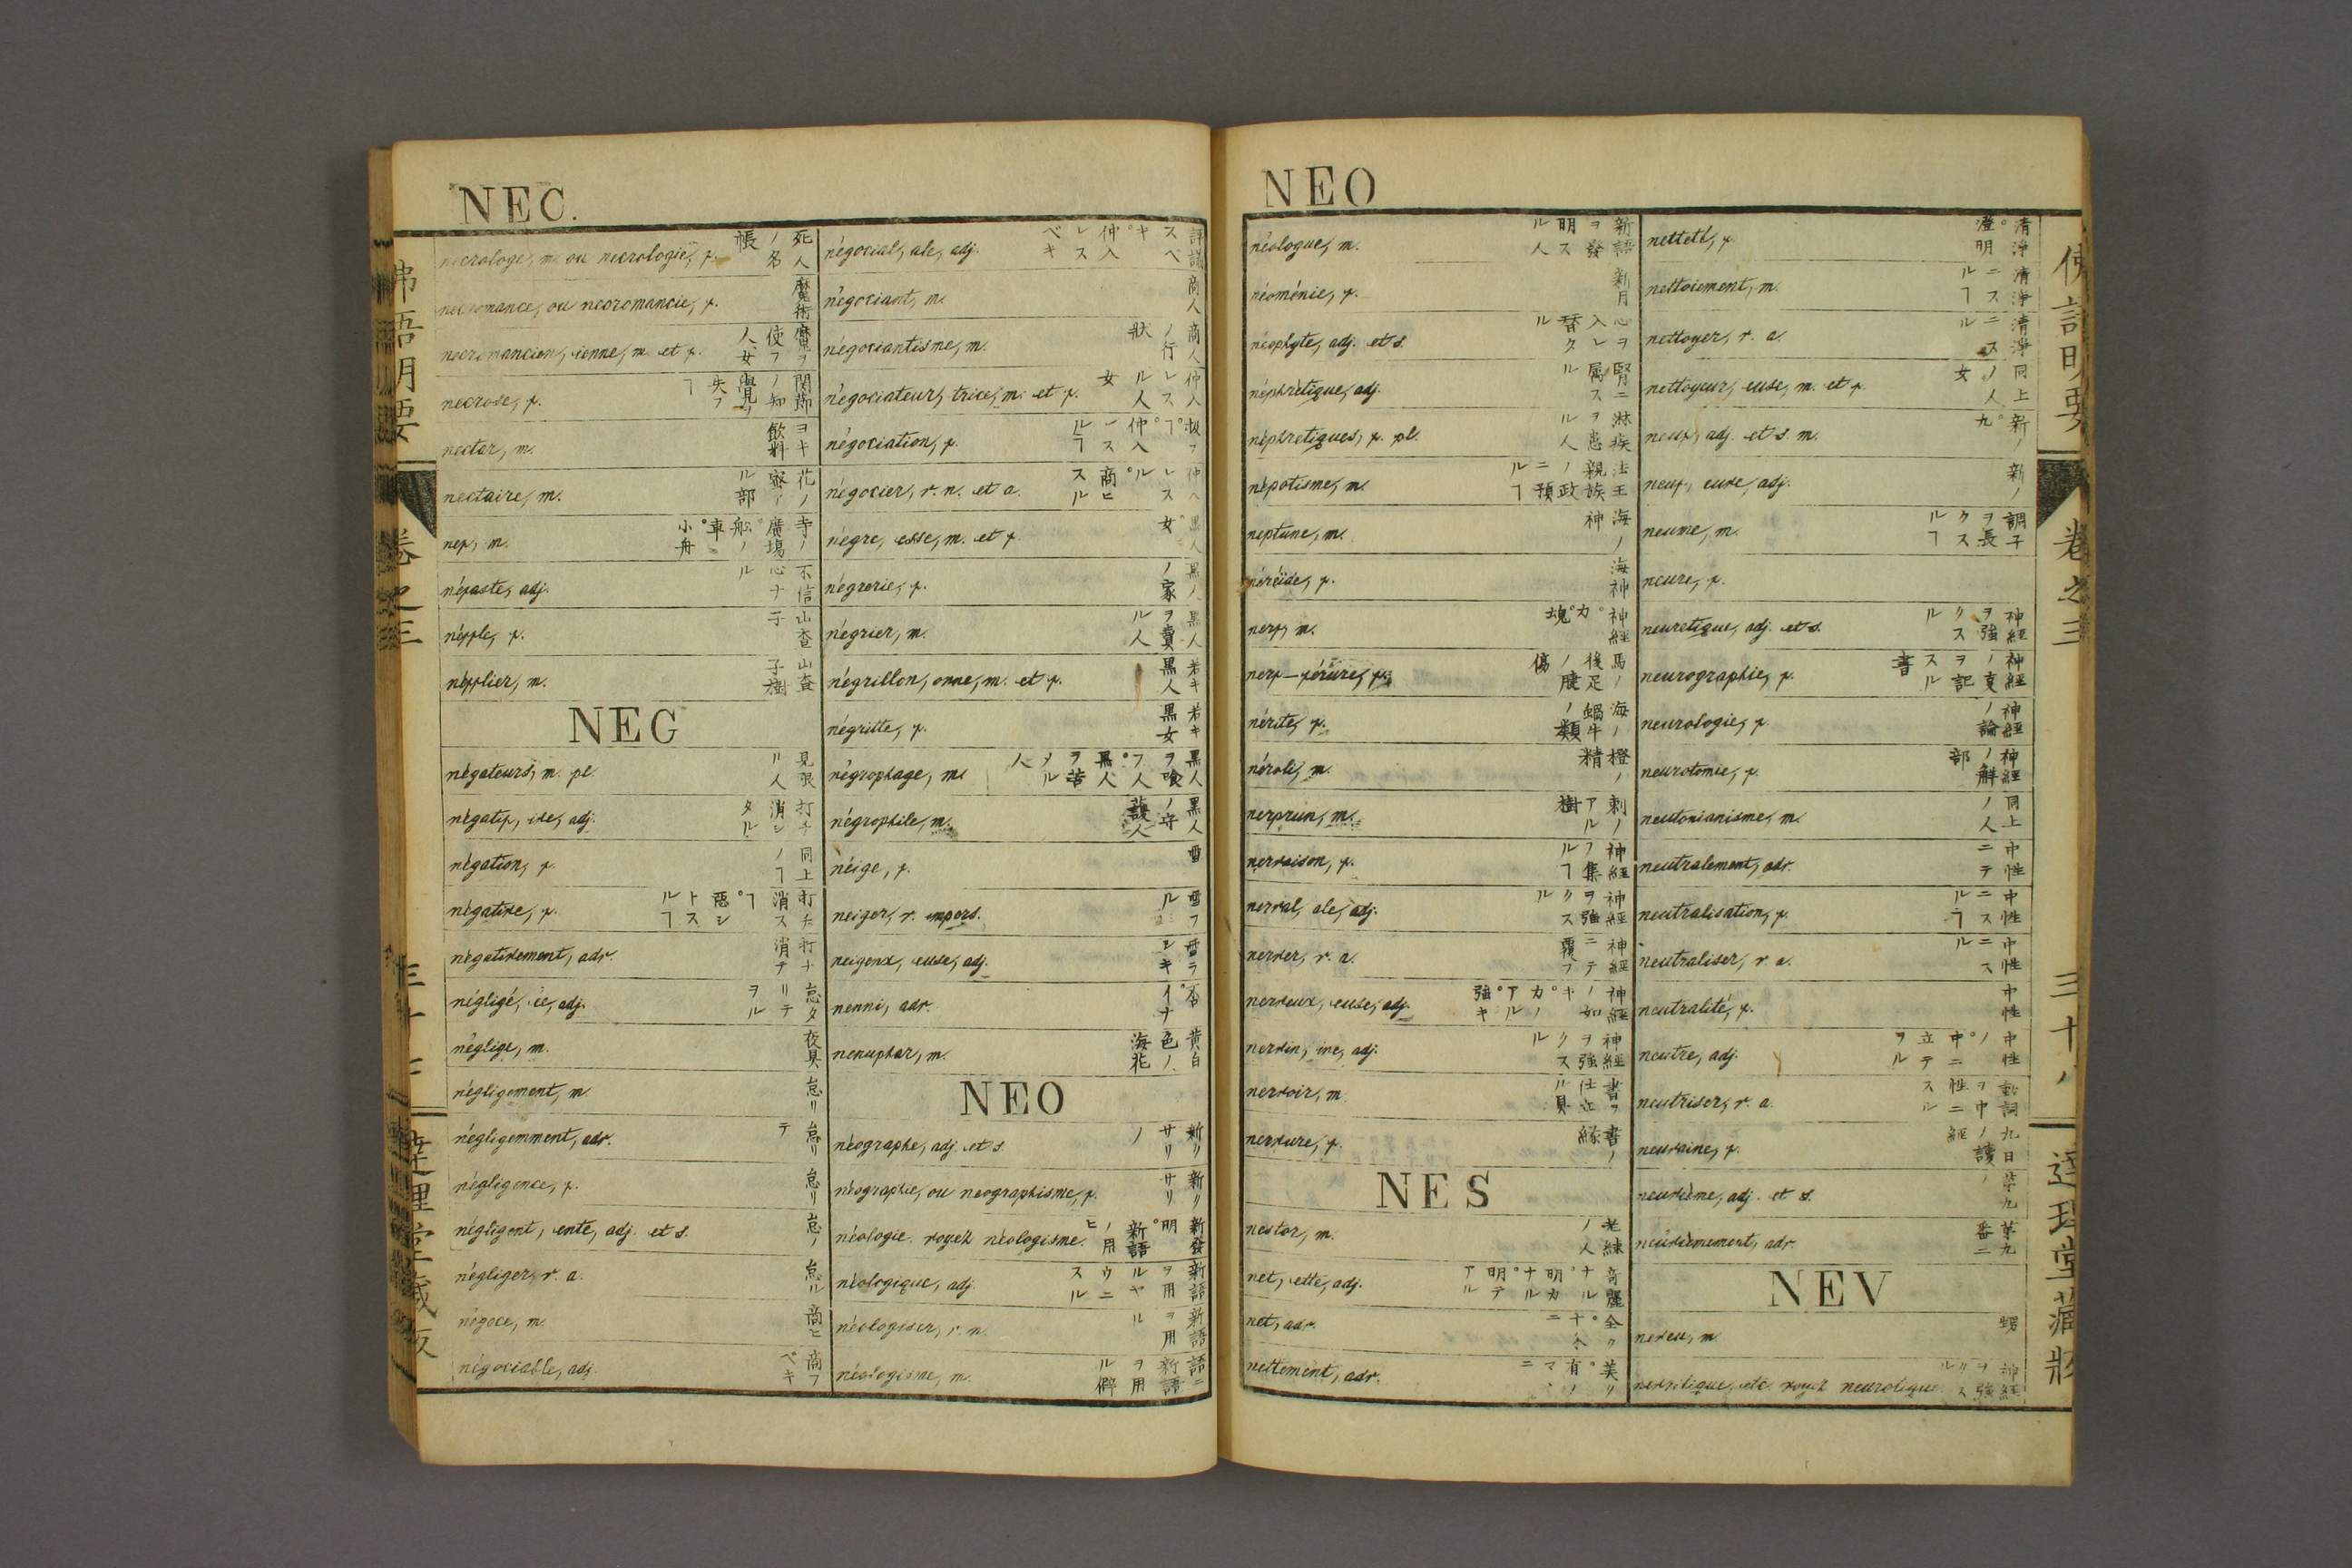 NEC.
necrologe, m. ou necrologie, f. 死人ノ名帳
necromance, ou necromancie, f. 魔術
necromancien, ienne, m. et f. 魔ヲ使フ人、女
necrose, f. 関節ノ知覺ヲ失フヿ
nectar, m. ヨキ飲料
nectaire, m. 花ノ蜜アル部
nef, m. 寺ノ廣塲゚船ノ車゚小舟
néfaste, adj. 不信心ナル
nèfle, f. 山査子
néfflier, m. 山査子樹
NEG
négateurs, m. pl. 見限ル人
négatif, ive, adj. 打チ消シタル
négation, f. 同上ノヿ
négative, f. 打チ消スヿ゚惡シトスルヿ
négativement, adv. 打ナ消テ
négligé, ée, adj. 怠タリテヲル
néglige, m. 夜具
négligement, m. 怠リ
négligemment, adv. 怠リテ
négligence, f. 怠リ
négligent, ente, adj. et s. 怠ノ
négliger, v. a. 怠ル
négoce, m. 商ヒ
négociable, adj. 商フベキ
négocial, ale, adj. 評議スベキ゚仲入レスベキ
négociant, m. 商人
négociantisme, m. 商人ノ行狀
négociateur, trice, m. et f. 仲入レスル人女
négociation, f. 扱フヿ゚仲入レスルヿ
négocier, v. n. et a. 仲入レスル゚商ヒスル
négre, esse, m. et f. 黒人゚女
négrerie, f. 黒人ノ家
négrier, m. 黒人ヲ賣ル人
négrillon, onne, m. et f. 若キ黒人
négritte, f. 若キ黒女
négrophage, m. 黒人ヲ喰フ人゚黒人ヲ苦メル人
négrophile, m. 黒人ノ守護人
néige, f. 雪
neiger, v. impers. 雪フル
neigeux, euse, adj. 雪ラシキ
nenni, adv. 否゚イナ
nenuphar, m. 黄白色ノ海花
NEO
néographe, adj. et s. 新リサリノ
néographie, ou neographisme, f. 新リサリ
néologie. voyez néologisme. 新發明゚新語ノ用ヒ
néologique, adj. 新語ヲ用ルヤウニスル
néologiser, v. n. 新語ヲ用ル
néologisme, m. 語ニ新語ヲ用ル僻
NEO
néologue, m. 新語ヲ發明スル人
néoménie, f. 新月
néophyte, adj. et s. 心ヲ入レ替タル
néphrètique, adj. 腎ニ屬スル
néphretiques, f. pl. 淋疾ヲ患ル人
népotisme, m. 法王親族ノ政ニ預ルヿ
neptune, m. 海ノ神
néréide, f. 海神
nerf, m. 神經゚力゚塊
nerf-férure, f. 馬ノ後足ノ腱傷
nérite, f. 海ノ蝸牛ノ類
néroli, m. 橙ノ精
nerprun, m. 刺ノアル樹
nervaison, f. 神經フ集ルヿ
nerval, ale, adj. 神經ヲ強クスル
nerver, v. a. 神經ニテ覆フ
nerveux, euse, adj. 神經ノ如キ゚力アル゚強キ
nervin, ine, adj. 神經ヲ強クスル
nervoir, m. 書ヲ仕立ル具
nervure, f. 書ノ縁
NES
nestor, m. 老練ノ人
net, ette, adj. 奇麗ナル゚明カナル゚明テアル
net, adv. 全ク
nettement, adv. 美リ゚有ノマヽニ
netteté, f. 清淨゚澄明
nettoiement, m. 清淨ニスルヿ
nettoyer, v. a. 清淨ニスル
nettoyeur, euse, m. et f. 同上ノ人女
neuf, adj. et s. m. 新ノ゚九
neuf, euve, adj. 新ノ
neume, m. 調子ヲ長クスルヿ
neure, f.
neuretique, adj. et s. 神經ヲ強クスル
neurographie, f. 神經ノ㕝ヲ記スル書
neurologie, f. 神經ノ論
neurotomie, f. 神經ノ觧部
neutonianisme, m. 同上ノ人
neutralement, adv. 中性ニテ
neutralisation, f. 中性ニスルヿ
neutraliser, v. a. 中性ニスル
neutralité, f. 中性
neutre, adj. 中性ノ゚中ニ立テヲル
neutriser, v. a. 動詞ヲ中性ニスル
neuvaine, f. 九日ノ讀經
neuvième, adj. et s. 苐九ノ
neuvièmement, adv. 苐九番ニ
NEV
neveu, m 甥
nevritique, etc. voyez neurotique 神經ヲ強クスル
佛語明要 卷之三 三十八 達理堂藏版